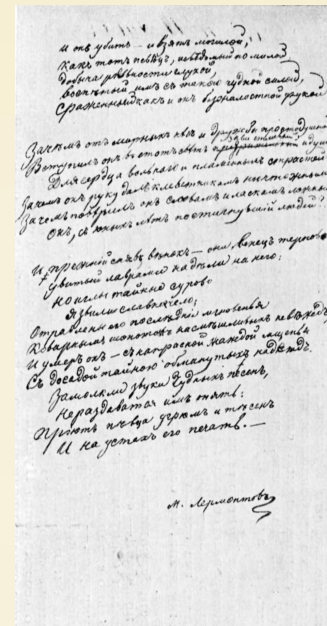 и онъ убитъ – и взятъ могилой,
какъ тотъ пѣвецъ, невѣдомый но милой
добыча ревности глухой,
воспѣтый имъ съ такою чудной силой,
сраженный какъ и онъ безжалостной рукой
Зачѣмъ отъ мирныхъ нѣгъ и дружбы простодушной
Вступилъ онъ въ этотъ свѣтъ завистливый и душный
Для сердца вольнаго и пламенныхъ страстей
Зачѣмъ онъ руку далъ клеветникамъ ничтожнымъ
Зачемъ повѣрилъ онъ словамъ и ласкамъ ложнымъ
Онъ, съ юныхъ лѣтъ постигнувшій людей?
И прежній снявъ вѣнокъ – они венецъ терновый
увитый лаврами надѣли на него:
но иглы тайныя сурово
Язвили славное чело;
Отравлены его последнія мгновенья
Коварнымъ шопотомъ насмѣшливыхъ невѣждъ
И умеръ онъ – съ напрасной жаждой мщенья
Съ досадой тайною обманутыхъ надеждъ.
Замолкли звуки чудныхъ пѣсенъ,
Нераздаватся имъ опять:
Пріютъ пѣвца угрюмъ и тѣсенъ
И на устахъ его печать. –
М. Лермонтовъ